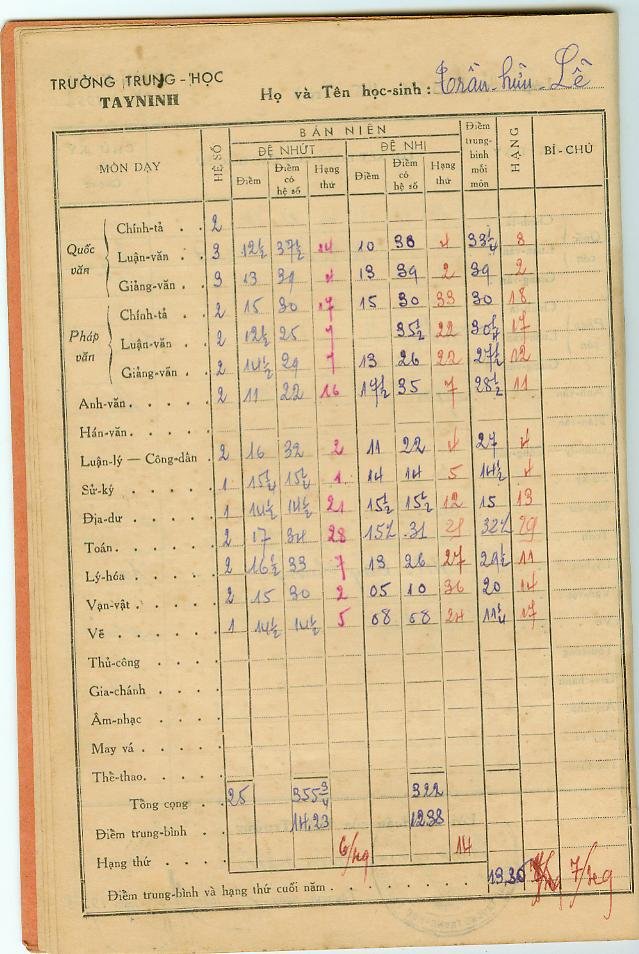 TRƯỜNG TRUNG-HỌC
TAYNINH
Họ và Tên học-sinh : Trần-hữu-Lễ
MÔN DẠY HỆ SỐ BÁN NIÊN Điểm trung-bình mỗi môn HẠNG BỊ-CHÚ
ĐỆ NHỨT ĐỆ NHỊ
Điểm Điểm có hệ số Hạng thứ Điểm Điểm có hệ số Hạng thứ
Quốc văn
Chính-tả . . 2
Luận-văn . . 3 12½ 37½ 14 10 30 4 33½ 8
Giảng-văn . . 3 13 39 4 13 39 2 39 2
Pháp văn
Chính-tả . . 2 15 30 17 15 30 33 30 18
Luận-văn . . 2 12½ 25 7 35½ 22 17
Giảng-văn . . 2 14½ 29 7 13 26 22 27½ 12
Anh-văn . . . . . 2 11 22 16 17½ 35 7 28½ 11
Hán-văn . . . . .
Luận-lý — Công-dân . 2 16 32 2 11 22 4 27 4
Sử-ký . . . . . 1 15¼ 15¼ 1 14 14 5 14½ 4
Địa-dư . . . . . 1 14½ 14½ 21 15½ 15½ 12 15 13
Toán . . . . . 2 17 34 28 15½ 31 32½ 19
Lý-hóa . . . . . 2 16½ 33 7 13 26 27 29½ 11
Vạn-vật . . . . . 2 15 30 2 05 10 36 20 14
Vẽ . . . . . 1 14½ 14½ 5 08 08 24 11¼ 17
Thủ-công . . . .
Gia-chánh . . . .
Âm-nhạc . . . .
May vá . . . . .
Thể-thao . . . .
Tổng cọng . . 25 355¾ 322
Điểm trung-bình . . 14,23 12,88
Hạng thứ . . . . 6/49 14
Điểm trung-bình và hạng thứ cuối năm . . . . . . . . 13,35 7/49